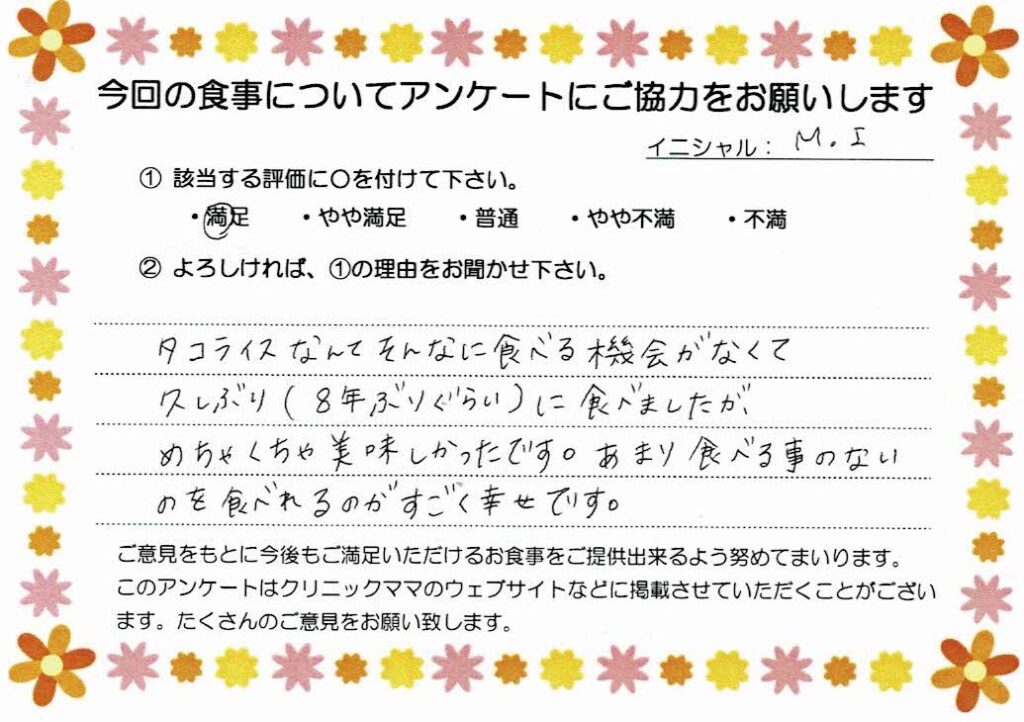 今回の食事についてアンケートにご協力をお願いします
イニシャル： M. I
① 該当する評価に〇を付けて下さい。
・満足 ・やや満足 ・普通 ・やや不満 ・不満
② よろしければ、①の理由をお聞かせ下さい。
タコライスなんてそんなに食べる機会がなくて
久しぶり(8年ぶりぐらい)に食べましたが、
めちゃくちゃ美味しかったです。あまり食べる事のない
のを食べれるのがすごく幸せです。
ご意見をもとに今後もご満足いただけるお食事をご提供出来るよう努めてまいります。
このアンケートはクリニックママのウェブサイトなどに掲載させていただくことがござい
ます。たくさんのご意見をお願い致します。